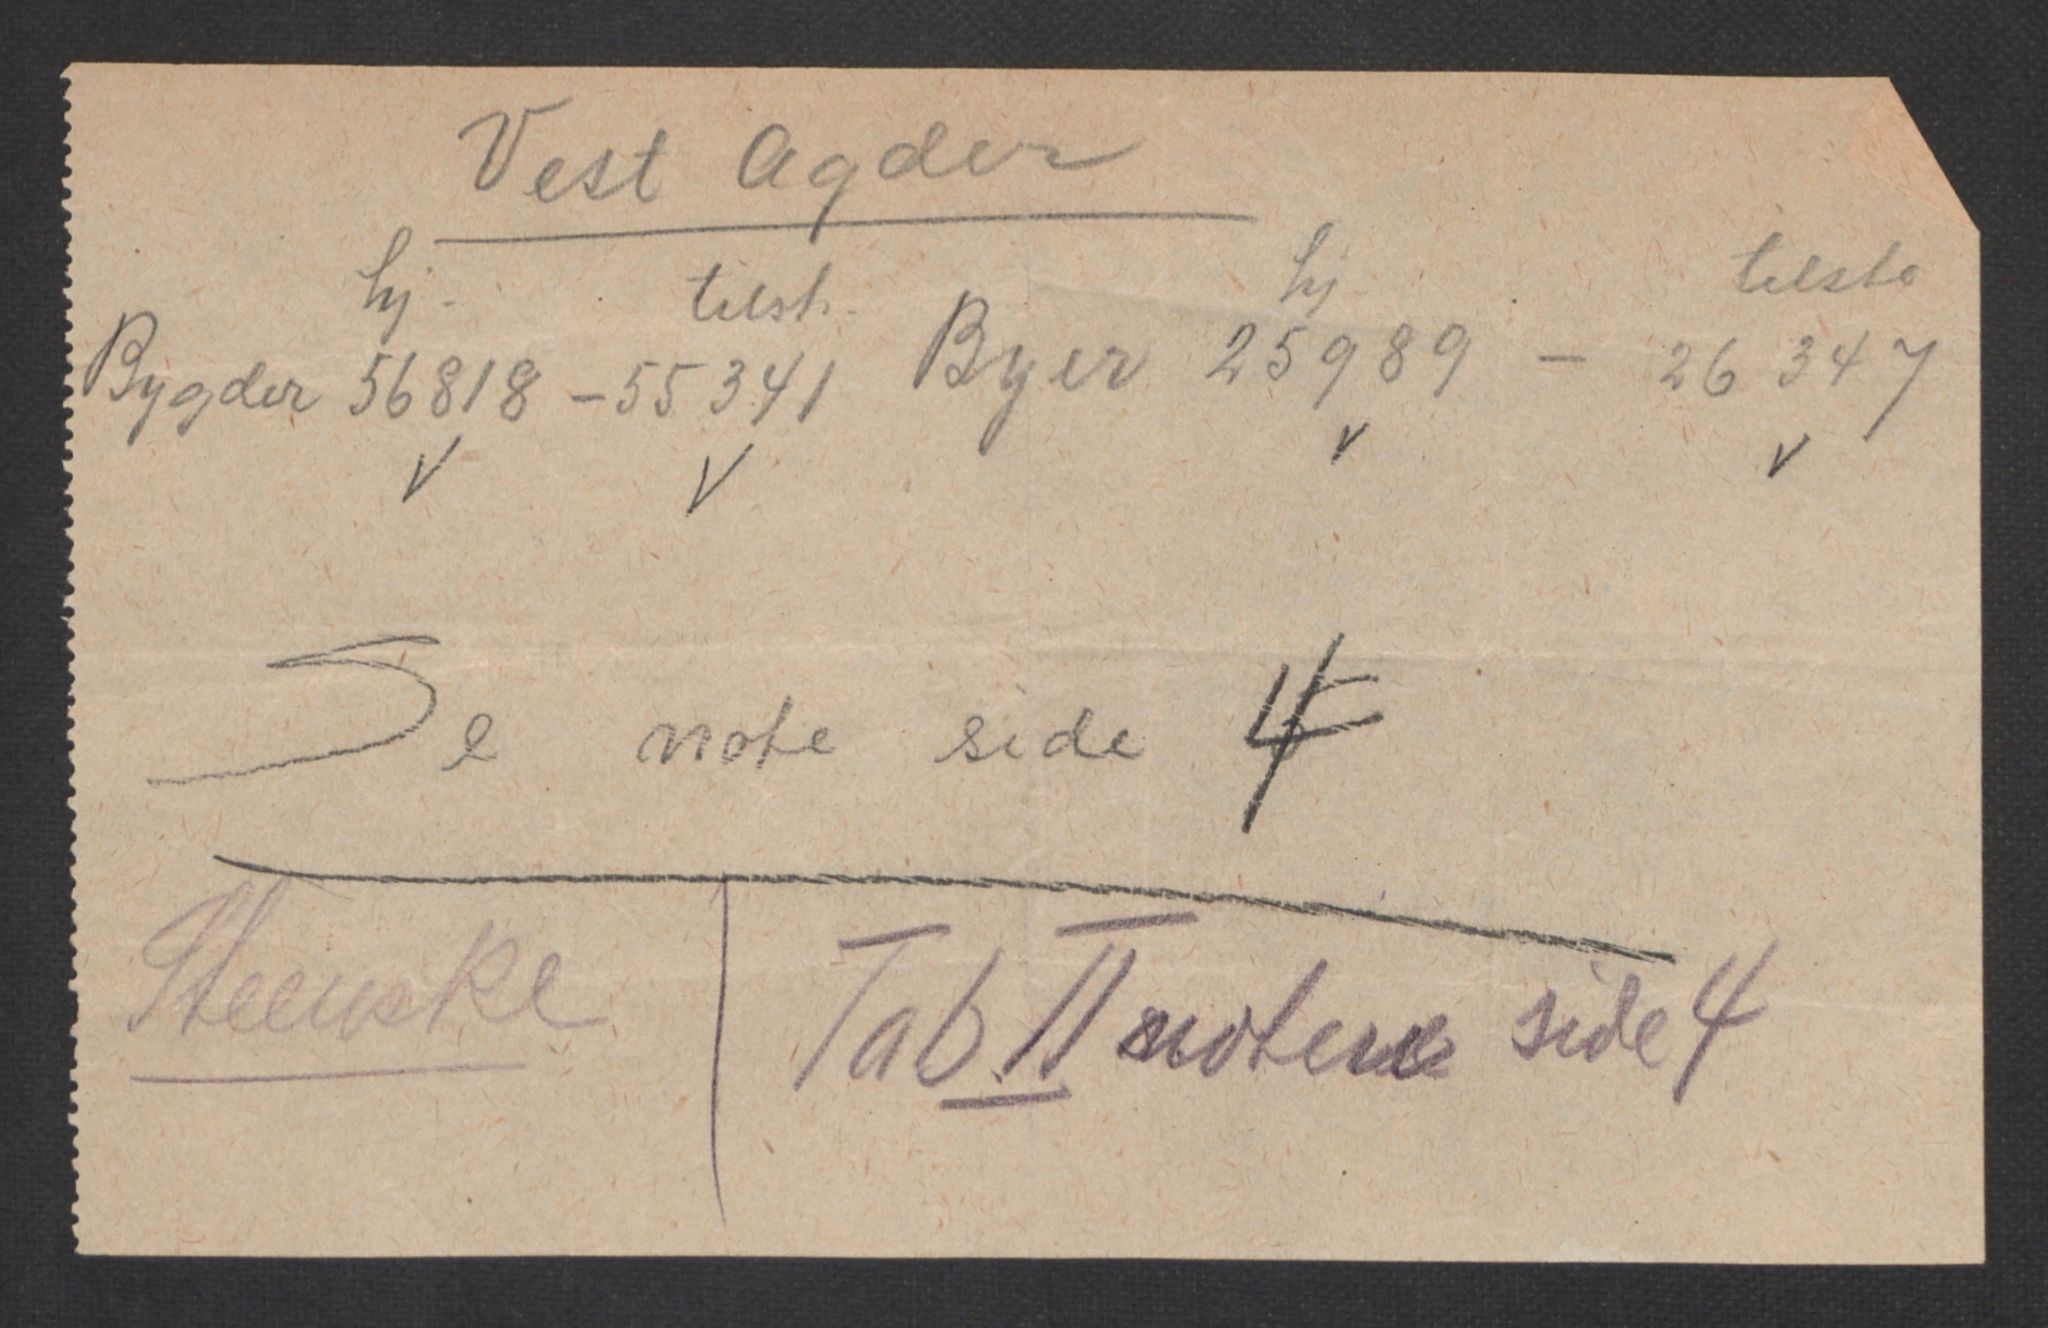 Vest Agder
hj. tilst. hj. tilst.
Bygder 56818 - 55341 Byer 25989 - 26347
Se note side 4
Tab. II notene side 4